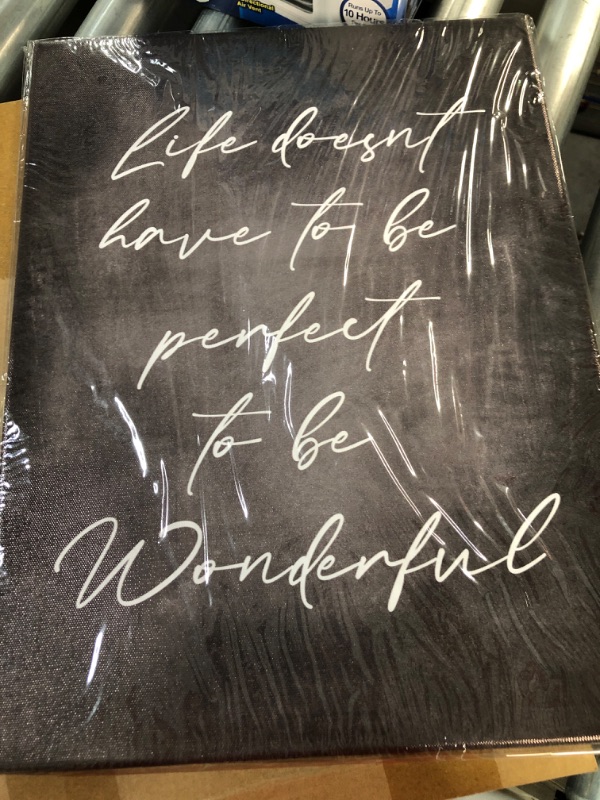 Directional
Air Vent
Runs Up To
10 Hours
Life doesnt
have to be
perfect
to be
Wonderful